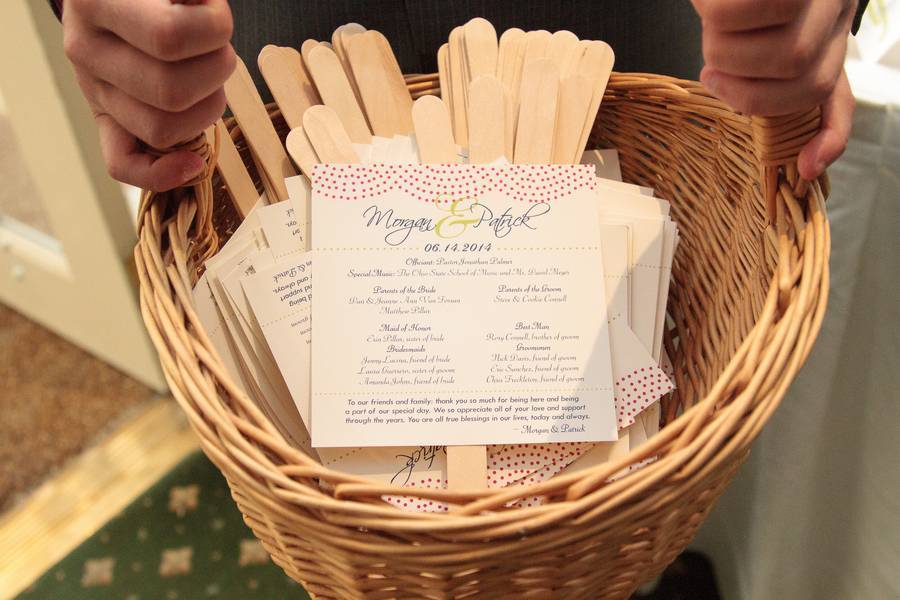 Morgan & Patrick
06.14.2014
Officiant: Pastor Jonathan Palmer
Special Music: The Ohio State School of Music and Mr. David Meyer
Parents of the Bride
Dan & Jeanne Ann Van Fossan
Matthew Pillar
Parents of the Groom
Steve & Cookie Connell
Maid of Honor
Erin Pillar, sister of bride
Bridesmaids
Jenny Lucina, friend of bride
Laura Guerrero, sister of groom
Amanda Johns, friend of bride
Best Man
Rory Connell, brother of groom
Groomsmen
Nick Davis, friend of groom
Eric Sanchez, friend of groom
Chris Freckleton, friend of groom
To our friends and family: thank you so much for being here and being
a part of our special day. We so appreciate all of your love and support
through the years. You are all true blessings in our lives, today and always.
— Morgan & Patrick